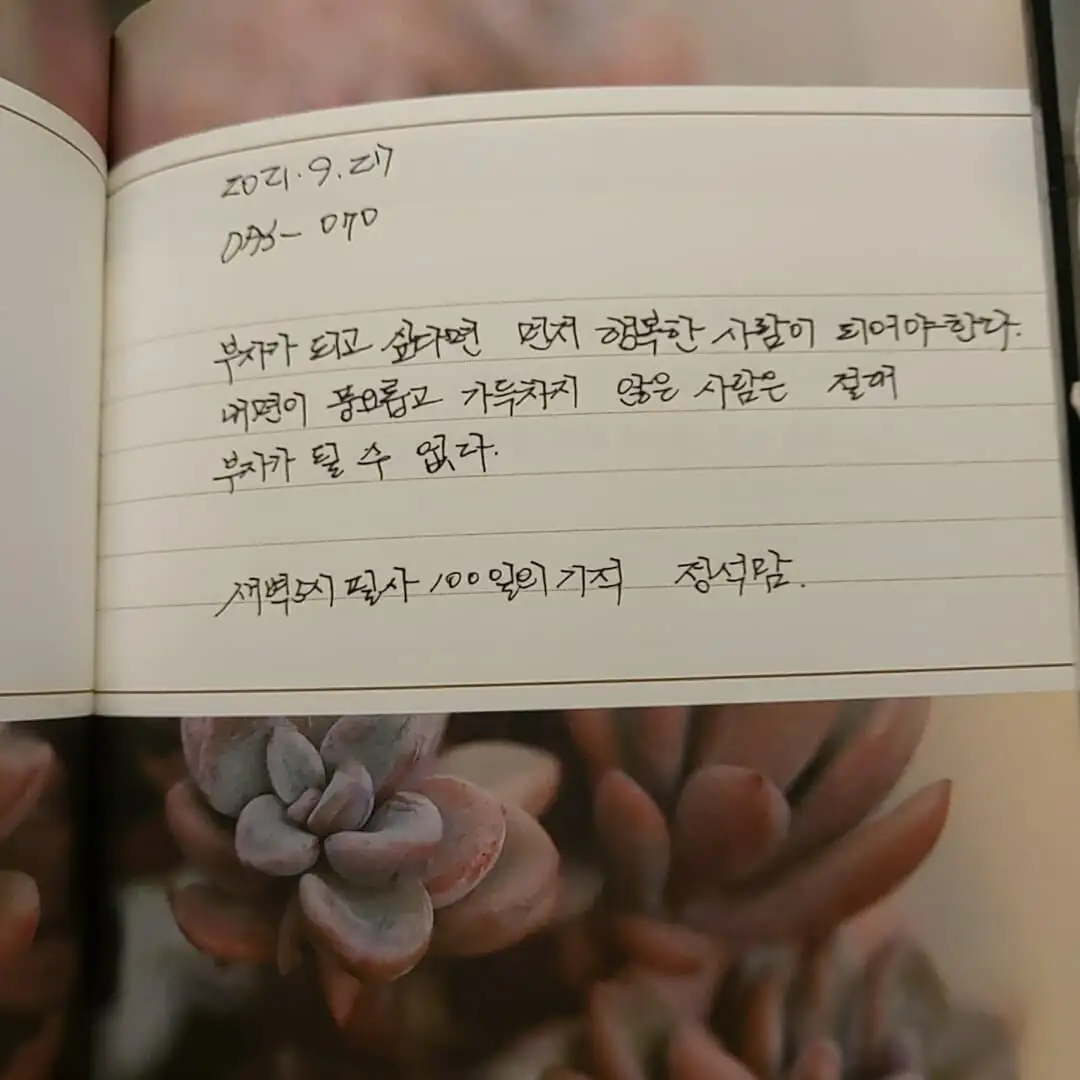 2021.9.27
DAY- 070
부자가 되고 싶다면 먼저 행복한 사람이 되어야한다.
내면이 풍요롭고 가득차지 않은 사람은 절대
부자가 될 수 없다.
새벽5시 필사 100일의 기적 정석담.